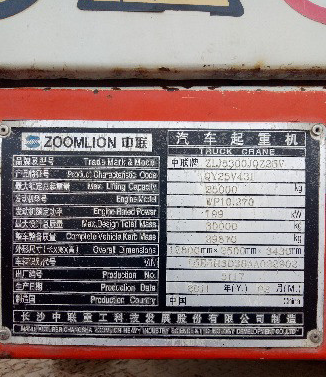 ZOOMLION 中联 汽车起重机
TRUCK CRANE
品牌及型号 Trade Mark & Model 中联牌 ZLJ5300JQZ25V
产品特征号 Product Characteristic Code QY25V431
最大额定总起重量 Max. Lifting Capacity 25000 kg
发动机型号 Engine Model WP10.270
发动机额定功率 Engine Rated Power 199 kW
最大设计总质量 Max. Design Total Mass 30000 kg
整车整备质量 Complete Vehicle Kerb Mass kg
外形尺寸 Overall Dimensions mm
出厂编号 Production No.
生产日期 Production Date 2011 年(Y.) 月(M.)
制造国 Production Country 中国 China
长沙中联重工科技发展股份有限公司制造
MANUFACTURER:CHANGSHA ZOOMLION HEAVY INDUSTRY SCIENCE&TECHNOLOGY DEVELOPMENT CO.,LTD